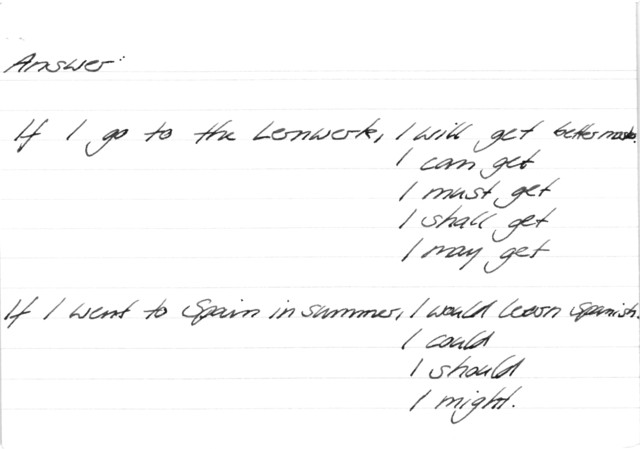 Answer:
If I go to the Lernwerk, I will get better marks.
I can get
I must get
I shall get
I may get
If I went to Spain in summer, I would learn Spanish.
I could
I should
I might.